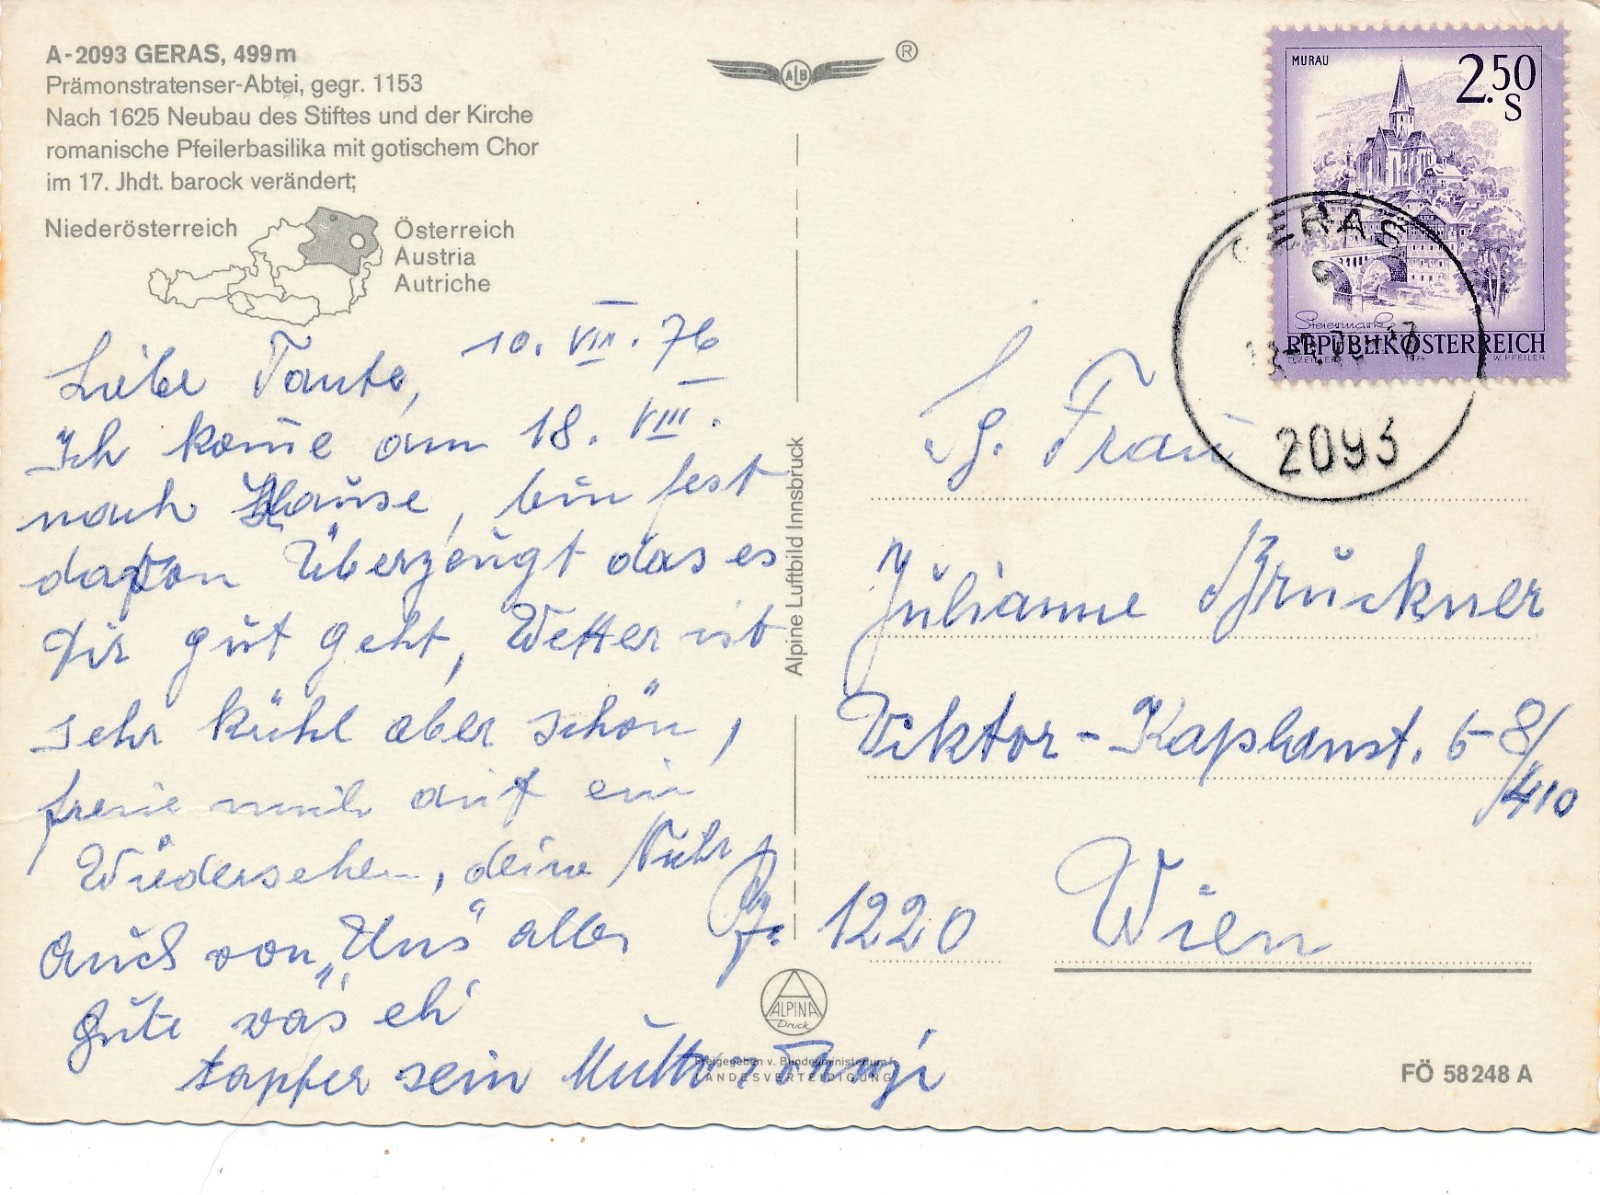 A-2093 GERAS, 499 m
Prämonstratenser-Abtei, gegr. 1153
Nach 1625 Neubau des Stiftes und der Kirche
romanische Pfeilerbasilika mit gotischem Chor
im 17. Jhdt. barock verändert;
Niederösterreich
Österreich
Austria
Autriche
10. VIII. 76
Liebe Tante,
Ich kome am 18. VIII.
nach Hause, bin fest
davon Überzeugt das es
Dir gut geht, Wetter ist
sehr kühl aber schön,
freue mich auf ein
Wiedersehen, deine
Auch von „Uns" alles
Gute
tapfer sein Mutter
ALB
®
Alpine Luftbild Innsbruck
ALPINA
Druck
Freigegeben v. Bundesministerium f.
LANDESVERTEIDIGUNG
MURAU
2.50
S
Steiermark
REPUBLIK ÖSTERREICH
W. PFEILER
GERAS
2093
Sg. Frau
Julianne Brückner
Viktor-Kaplanst. 6-8/
410
1220 Wien
FÖ 58 248 A